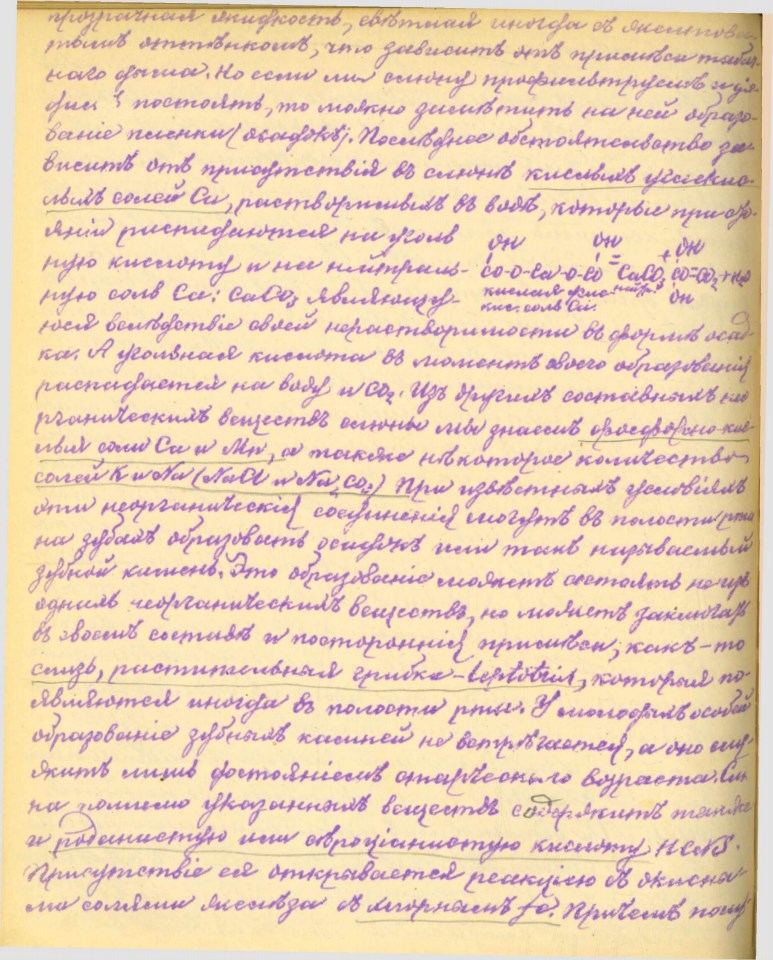 прозрачная жидкость, свѣтлая иногда съ желтова-
тымъ оттѣнкомъ, что зависитъ отъ примѣси табач-
наго дыма. Но если мы слюну профильтруемъ и
постоять, то можно замѣтить на ней образо-
ваніе пленки (осадокъ). Послѣднее обстоятельство за-
виситъ отъ присутствія въ слюнѣ кислыхъ углекис-
лыхъ солей Ca, растворимыхъ въ водѣ, которыя при
распадаются на уголь
ную кислоту и на нейтраль-
ную соль Ca: CaCO3 являющу-
OH OH OH
CO-O-Ca-O-CO = CaCO3 + CO=CO2+H2O
кислая кис. нейтр. OH
кис. соль Ca.
юся вслѣдствіе своей нерастворимости въ формѣ осад-
ка. А угольная кислота въ моментъ своего образованія
распадается на воду и CO2. Изъ другихъ составныхъ нео-
рганическихъ веществъ слюны мы знаемъ фосфорно-кис-
лыя соли Ca и Mn, а также нѣкоторое количество
солей K и Na (NaCl и Na2CO3) При извѣстныхъ условіяхъ
эти неорганическія соединенія могутъ въ полости рта
на зубахъ образовать осадокъ или такъ называемый
зубной камень. Это образованіе можетъ состоять не изъ
однихъ неорганическихъ веществъ, но можетъ заключать
въ своемъ составѣ и постороннія примѣси, какъ-то
слизь, растительныя грибка - leptotrix, которыя по-
являются иногда въ полости рта. У молодыхъ особей
образованіе зубныхъ камней не встрѣчается, а оно слу-
житъ лишь достояніемъ старческаго возраста. Слю-
на помимо указанныхъ веществъ содержитъ также
и роданистую или сѣроціанистую кислоту HCNS.
Присутствіе ея открывается реакціею съ окисны-
ми солями желѣза съ хлорнымъ fe. Причемъ полу-